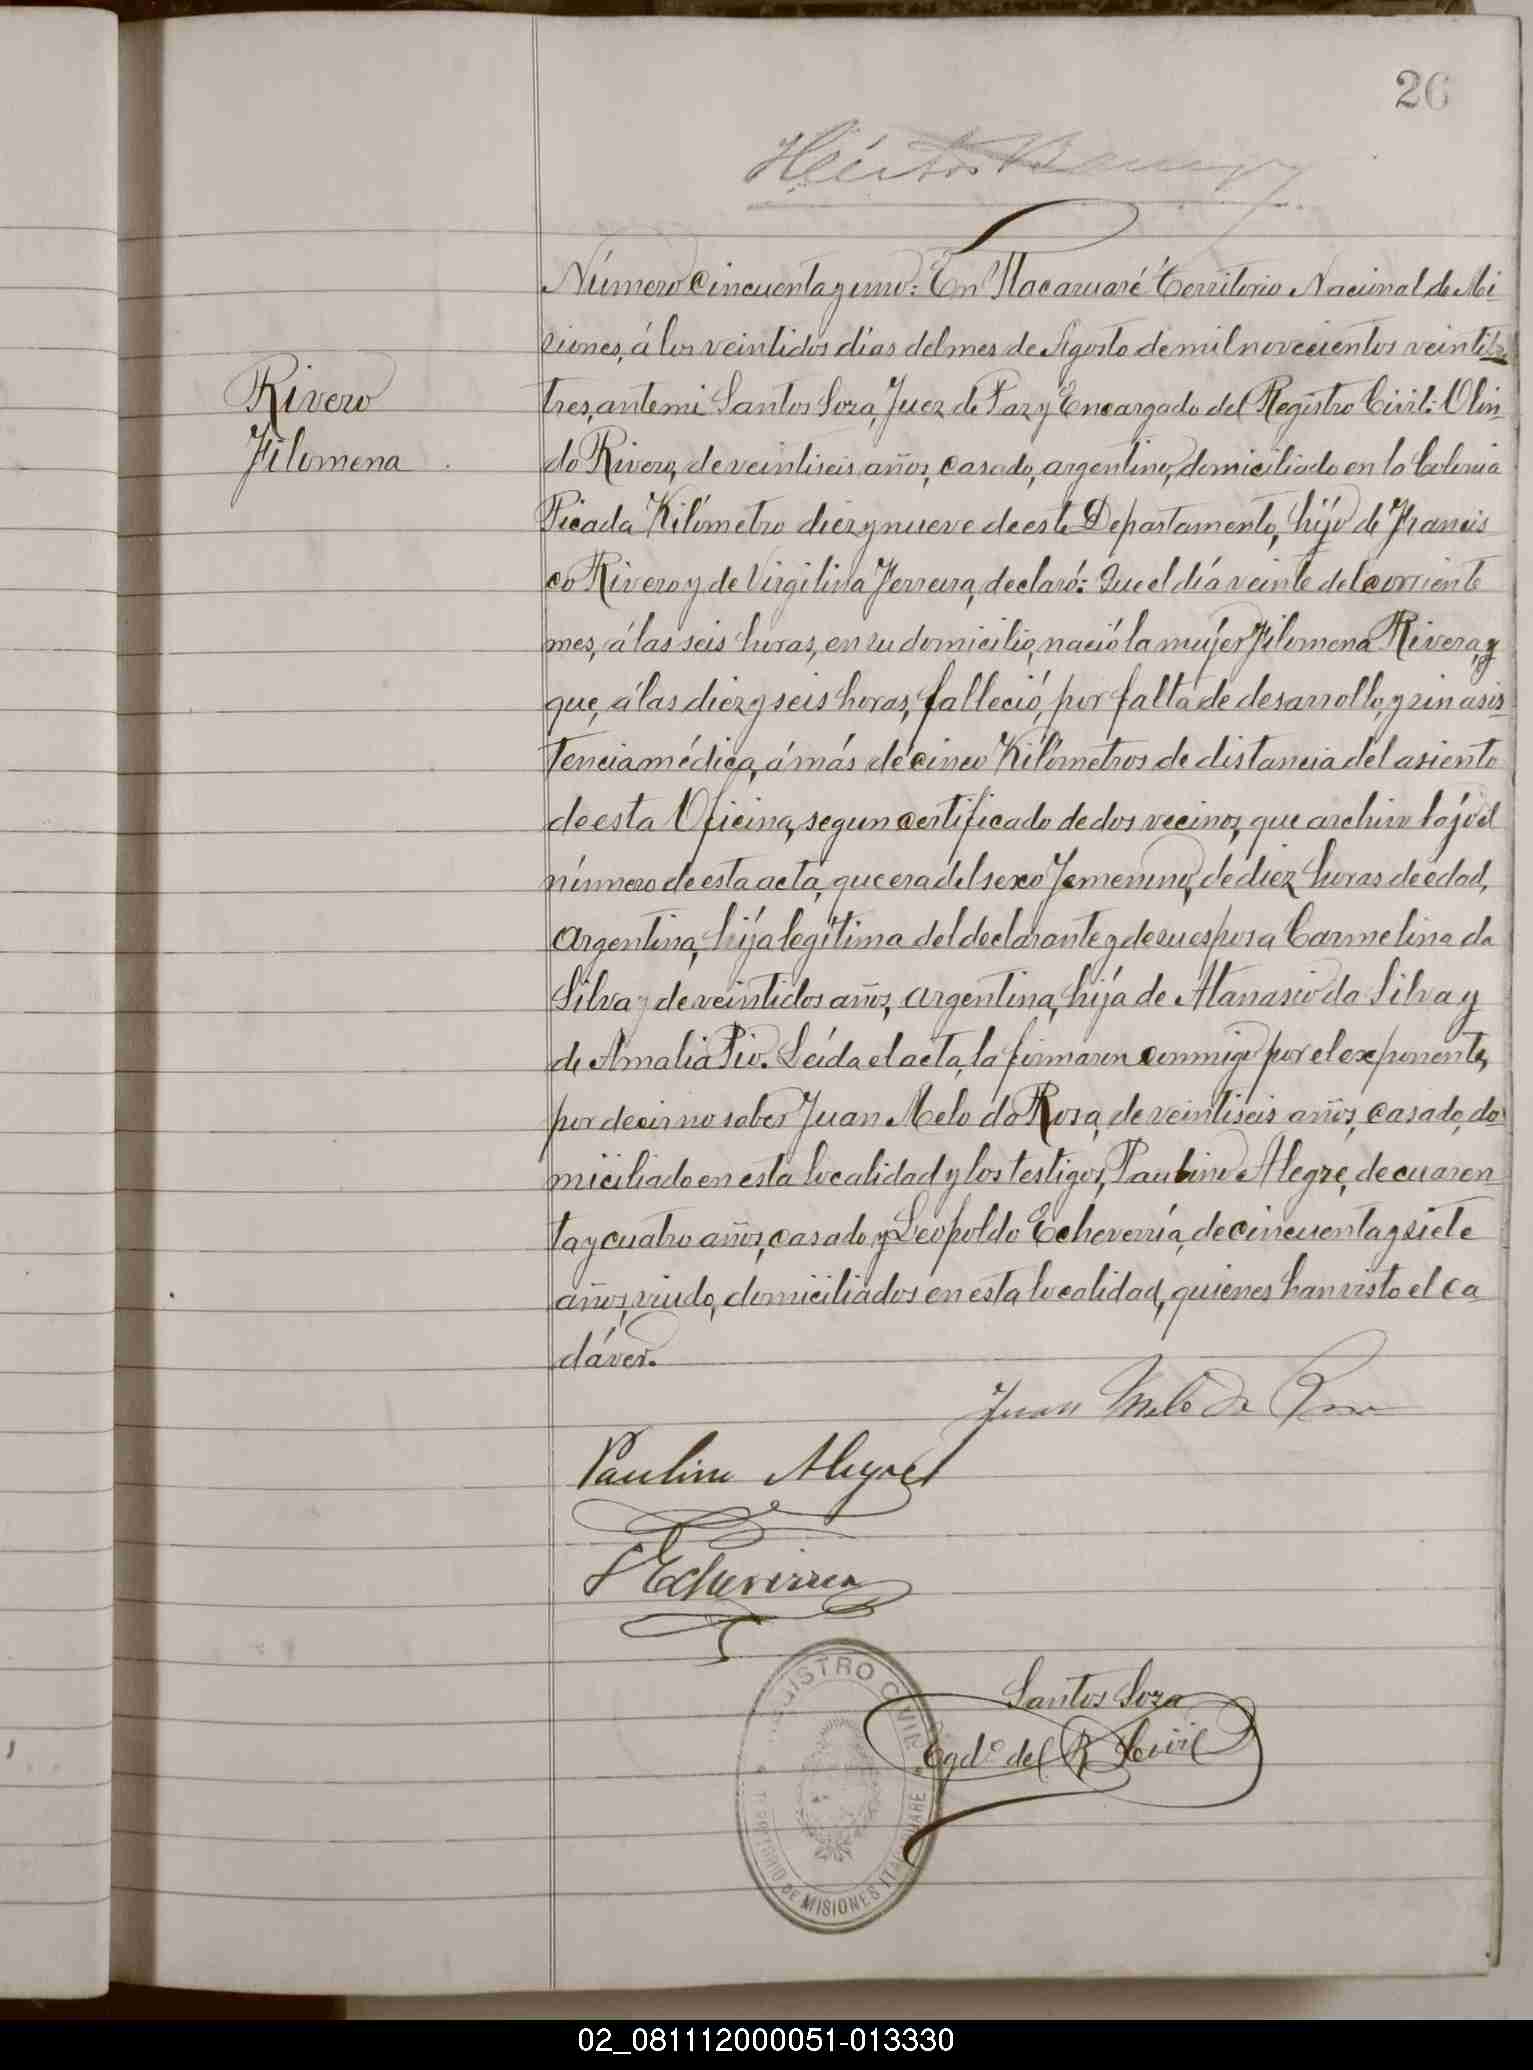 26
Héctor
Número cincuenta y uno: En Itacaruaré Territorio Nacional de Mi-
siones, á los veintidos días del mes de Agosto de mil novecientos veinti
Rivero
Filomena
tres, ante mi Santos Soza, Juez de Paz y Encargado del Registro Civil: Olin-
do Rivero, de veintiseis años, casado, argentino, domiciliado en la Colonia
Picada Kilómetro diez y nueve de este Departamento, hijo de Francis
co Rivero y de Virgilina Ferreira, declaró: Que el día veinte del corriente
mes, á las seis horas, en su domicilio, nació la mujer Filomena Rivera, y
que, á las diez y seis horas, falleció, por falta de desarrollo, y sin asis-
tencia médica, á más de cinco Kilómetros de distancia del asiento
de esta Oficina, segun certificado de dos vecinos, que archivo bajo el
número de esta acta, que era del sexo femenino, de diez horas de edad,
Argentina, hija legítima del declarante y de su esposa Carmelina da
Silva, de veintidos años, argentina, hija de Atanasio da Silva y
de Amalia Pio. Leída el acta, la firmaron conmigo por el exponente,
por decir no saber Juan Melo da Rosa, de veintiseis años, casado, do-
miciliado en esta localidad y los testigos, Paulino Alegre, de cuaren-
ta y cuatro años, casado y Leopoldo Echeverría, de cincuenta y siete
años, viudo, domiciliados en esta localidad, quienes han visto el ca-
dáver.
Juan Melo da Rosa
Paulino Alegre
L Echeverria
Santos Soza
Egdº del R Civil
REGISTRO CIVIL
TERRITORIO DE MISIONES ITACARUARE
02_081112000051-013330